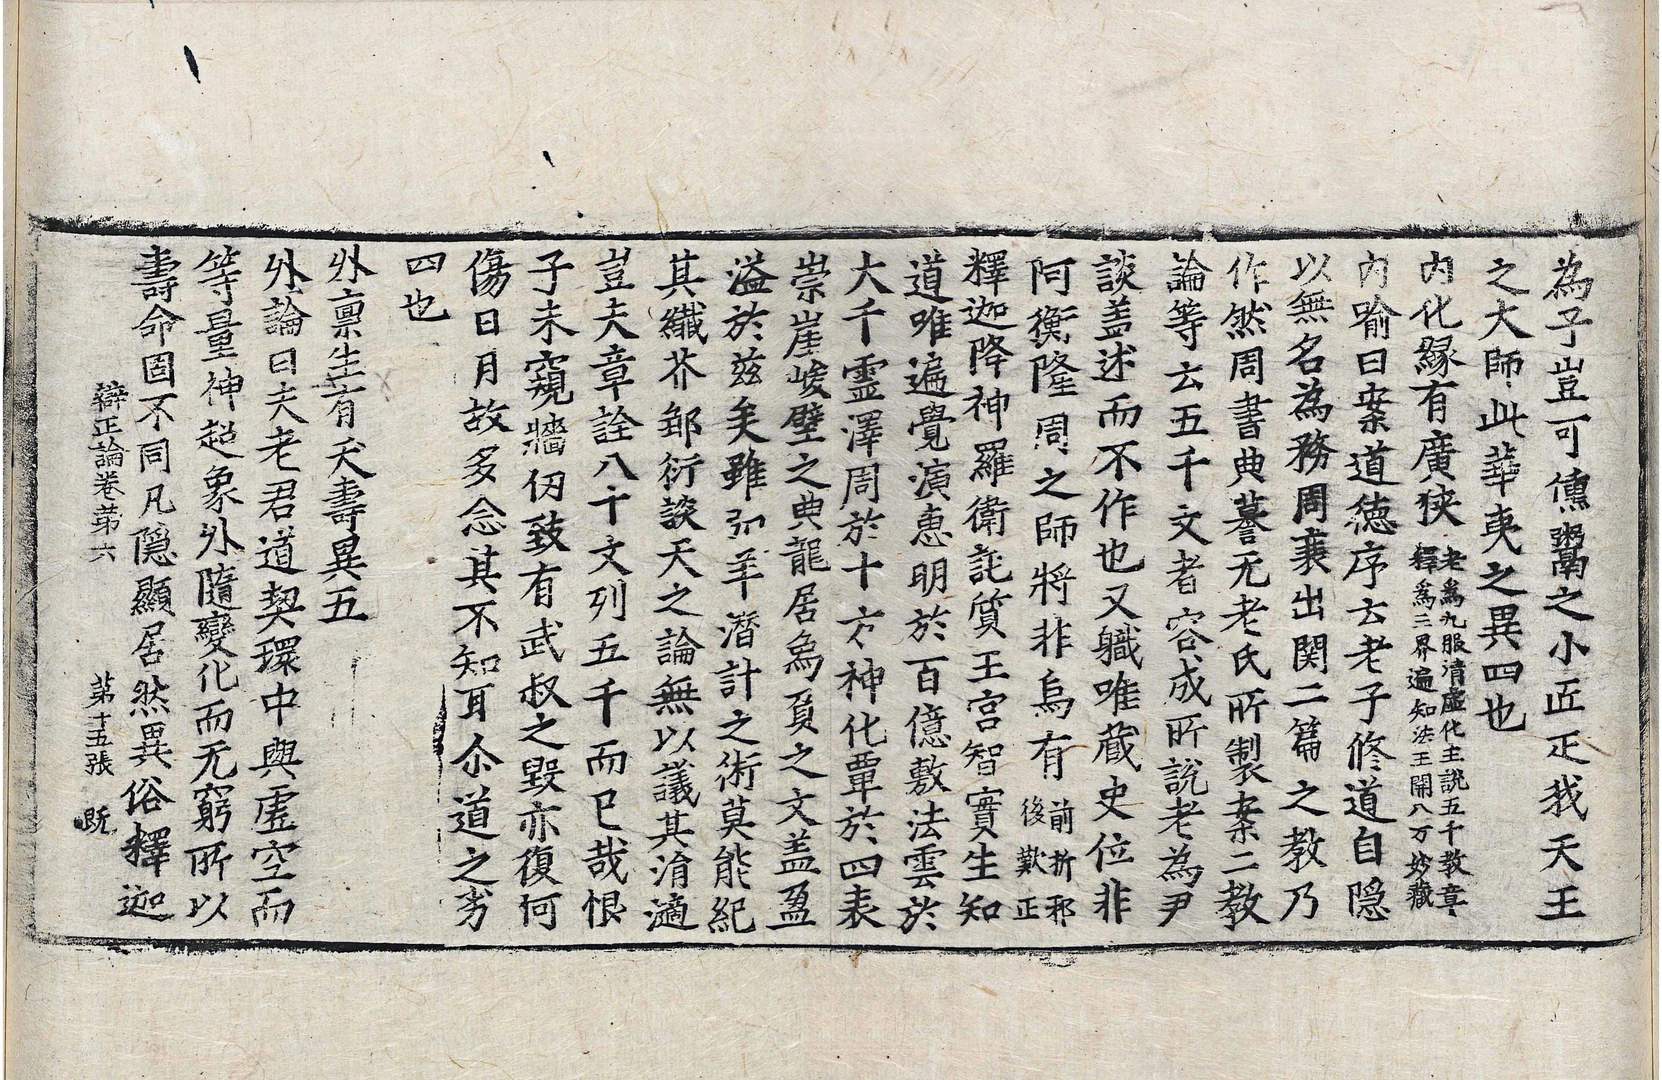 為子豈可儔鬻之小匠疋我天王
之大師此華夷之異四也
内化縁有廣狹老爲九服清虛化主說五千教章
釋爲三界遍知法王開八万妙藏
内喻曰案道德序云老子修道自隱
以無名為務周衰出関二篇之教乃
作然周書典謩无老氏所製案二教
論等云五千文者容成所說老為尹
談盖述而不作也又軄唯蔵史位非
阿衡隆周之師將非烏有前折邪
後歎正
釋迦降神羅衛託質王宮智實生知
道唯遍覺演恵明於百億敷法雲於
大千靈澤周於十方神化覃於四表
崇崖峻壁之典龍居為負之文盖盈
溢於兹矣雖弱羊潛計之術莫能紀
其纖芥鄒衍談天之論無以議其涓滴
豈夫章詮八十文列五千而已哉恨
子未窺牆仞致有武叔之毀亦復何
傷日月故多念其不知耳尒道之劣
四也
外稟生有夭壽異五
外論曰夫老君道契環中與虛空而
等量神超象外隨變化而无窮所以
壽命固不同凡隱顯居然異俗釋迦
辯正論卷苐六　苐十五張　既